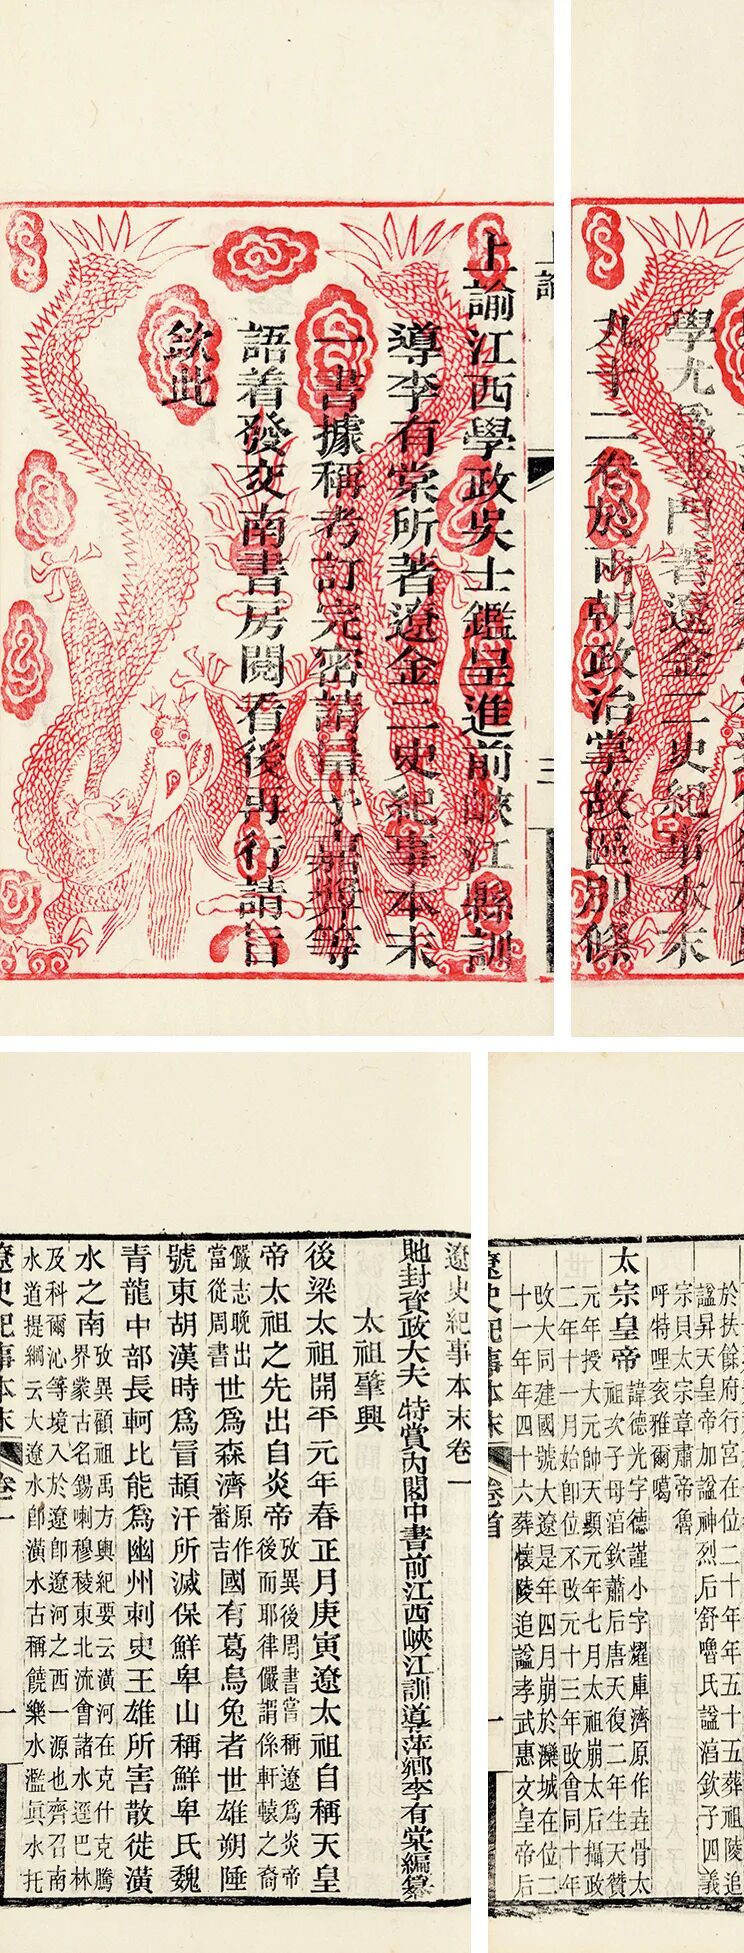 上諭江西學政吳士鑑呈進前峽江縣訓
導李有棠所著遼金二史紀事本末
一書據稱考訂完密請量予嘉獎等
語着發交南書房閱看後再行請旨
欽此
上諭
三
學尤為專門著遼金二史紀事本末
九十二卷於兩朝政治掌故區別條
遼史紀事本末卷一
貤封資政大夫 特賞內閣中書前江西峽江訓導萍鄉李有棠編纂
太祖肇興
後梁太祖開平元年春正月庚寅遼太祖自稱天皇
帝太祖之先出自炎帝攷異後周書嘗稱遼為炎帝
後而耶律儼謂係軒轅之裔
儼志晚出
當從周書世為森濟原作
審吉國有葛烏兔者世雄朔陲
號東胡漢時為冒頓汗所滅保鮮卑山稱鮮卑氏魏
青龍中部長軻比能為幽州刺史王雄所害散徙潢
水之南攷異顧祖禹方輿紀要云潢河在克什克騰
界蒙古名錫喇穆稜東北流會諸水逕巴林
及科爾沁等境入於遼即遼河之西一源也齊召南
水道提綱云大遼水即潢水古稱饒樂水濫真水托
遼史紀事本末 卷一
一
於扶餘府行宮在位二十年年五十五葬祖陵追
諡昇天皇帝加諡神烈后舒嚕氏諡淳欽子四義
宗貝太宗章肅帝魯
呼特哩袞雅爾噶
太宗皇帝諱德光字德謹小字耀庫濟原作堯骨太
祖次子母淳欽蕭后唐天復二年生天贊
元年授大元帥天顯元年七月太祖崩太后攝政
二年十一月始即位不改元十三年改會同十年
改大同建國號大遼是年四月崩於灤城在位二
十一年年四十六葬懷陵追諡孝武惠文皇帝后
遼史紀事本末 卷首
一